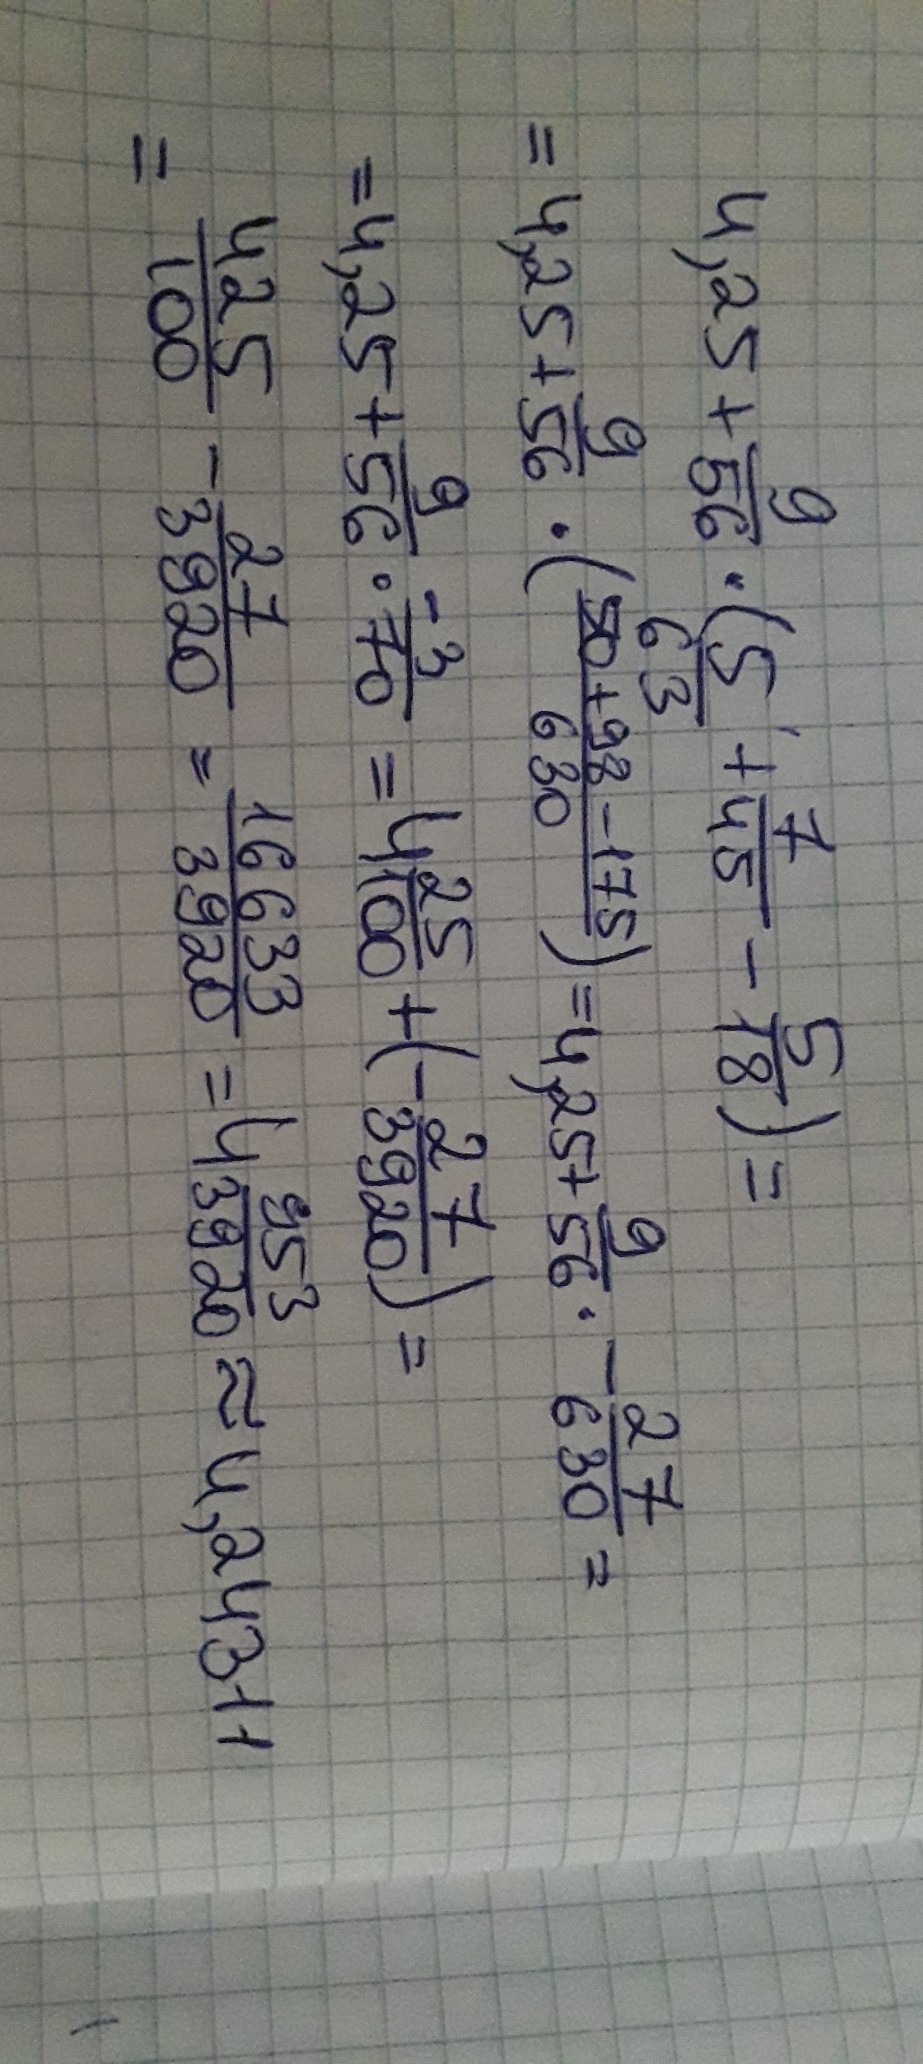 4,25 + 9/56 · (5/63 + 7/45 − 5/18) =
= 4,25 + 9/56 · (50 + 98 − 175/630) = 4,25 + 9/56 · −27/630 =
= 4,25 + 9/56 · −3/70 = 4 25/100 + (−27/3920) =
= 425/100 − 27/3920 = 16633/3920 = 4 953/3920 ≈ 4,2431